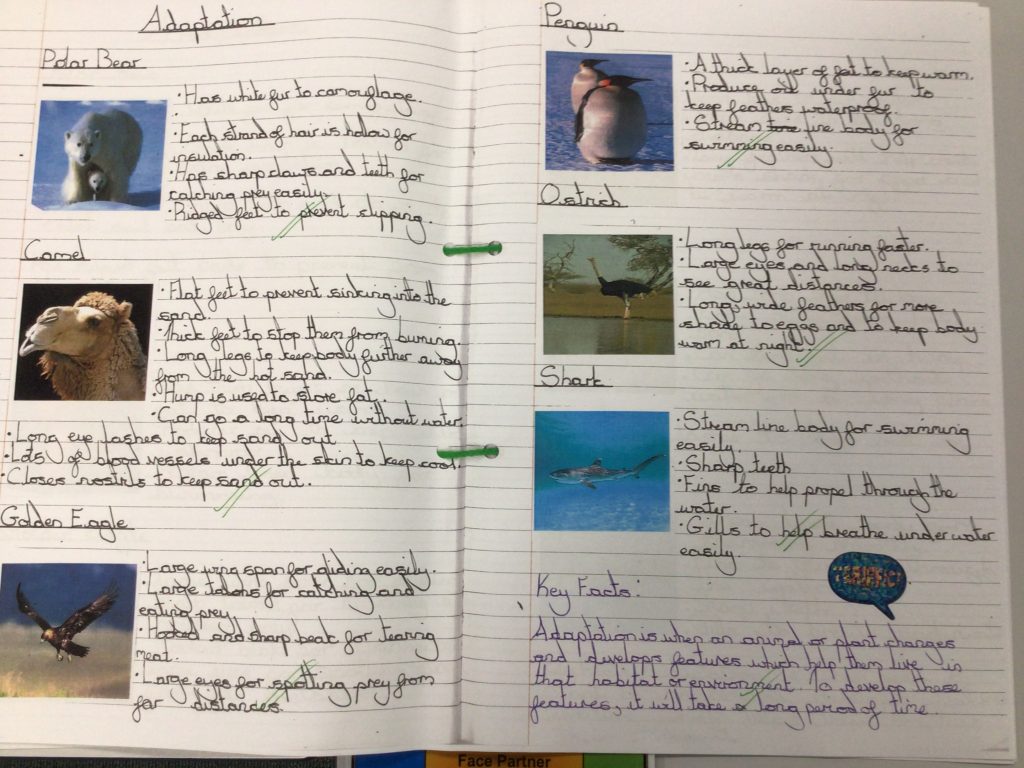 Adaptation
Polar Bear
• Has white fur to camouflage.
• Each strand of hair is hollow for
insulation.
• Has sharp claws and teeth for
catching prey easily.
• Ridged feet to prevent slipping.
Camel
• Flat feet to prevent sinking into the
sand.
• Thick feet to stop them from burning.
• Long legs to keep body further away
from the hot sand.
• Hump is used to store fat.
• Can go a long time without water.
• Long eye lashes to keep sand out
• Lots of blood vessels under the skin to keep cool.
• Closes nostrils to keep sand out.
Golden Eagle
• Large wing span for gliding easily.
• Large talons for catching and
eating prey.
• Hooked and sharp beak for tearing
meat.
• Large eyes for spotting prey from
far distances.
Penguin
• A thick layer of fat to keep warm.
• Produce oil under fur to
keep feathers waterproof.
• Stream line body for
swimming easily.
Ostrich
• Long legs for running faster.
• Large eyes and long necks to
see great distances.
• Long, wide feathers for more
shade to eggs and to keep body
warm at night.
Shark
• Stream line body for swimming
easily.
• Sharp teeth
• Fins to help propel through the
water.
• Gills to help breathe under water
easily.
TERRIFIC!
Key Facts:
Adaptation is when an animal or plant changes
and develops features which help them live in
that habitat or environment. To develop these
features, it will take a long period of time.
Face Partner